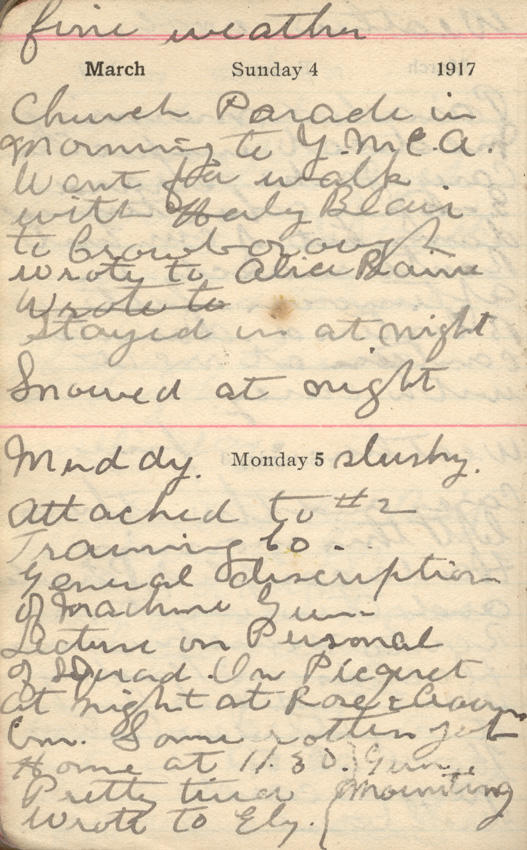 fine weather
March Sunday 4 1917
Church Parade in
morning to Y.M.C.A.
Went for walk
with Blair
to Crowborough
wrote to Alice Blain
Wrote to
Stayed in at night
Snowed at night
Muddy. Monday 5 slushy.
Attached to #2
Training Co.
General discription
of Machine Gun
Lecture on Personal
of Squad. On Picquet
at night at Rose & Crown
Some rotten job
Home at 11.30. Gun
Pretty tired Mounting
Wrote to Ely.